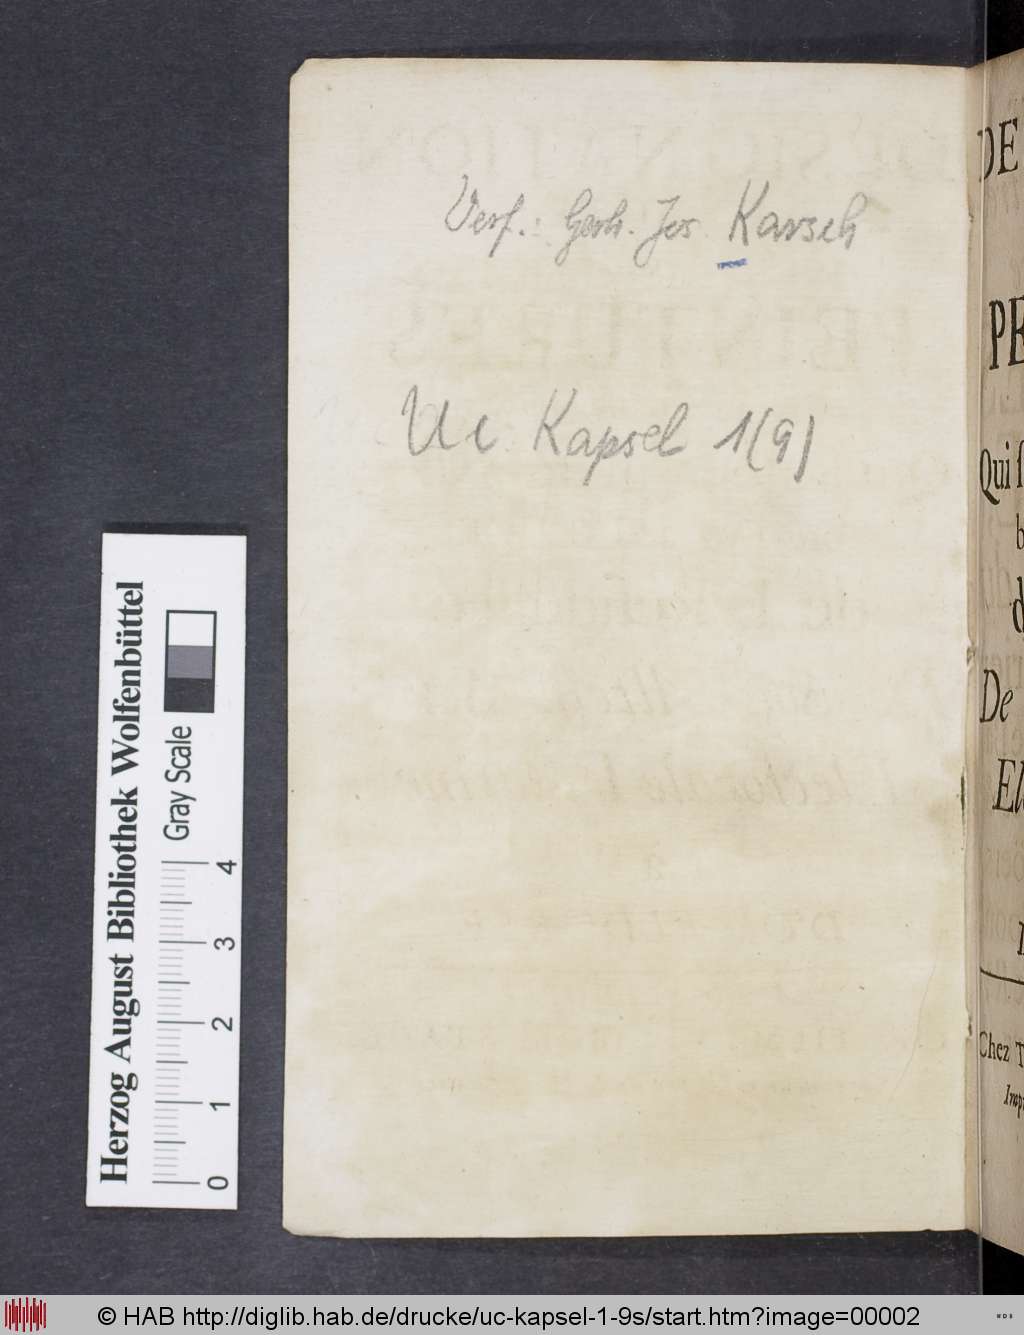 Verf.: Gerh. Jos. Karsch
Uc Kapsel 1(9)
Herzog August Bibliothek Wolfenbüttel
Gray Scale
0 1 2 3 4
DE
PE
Qui
b
d
De
El
Chez T
Imp
© HAB http://diglib.hab.de/drucke/uc-kapsel-1-9s/start.htm?image=00002